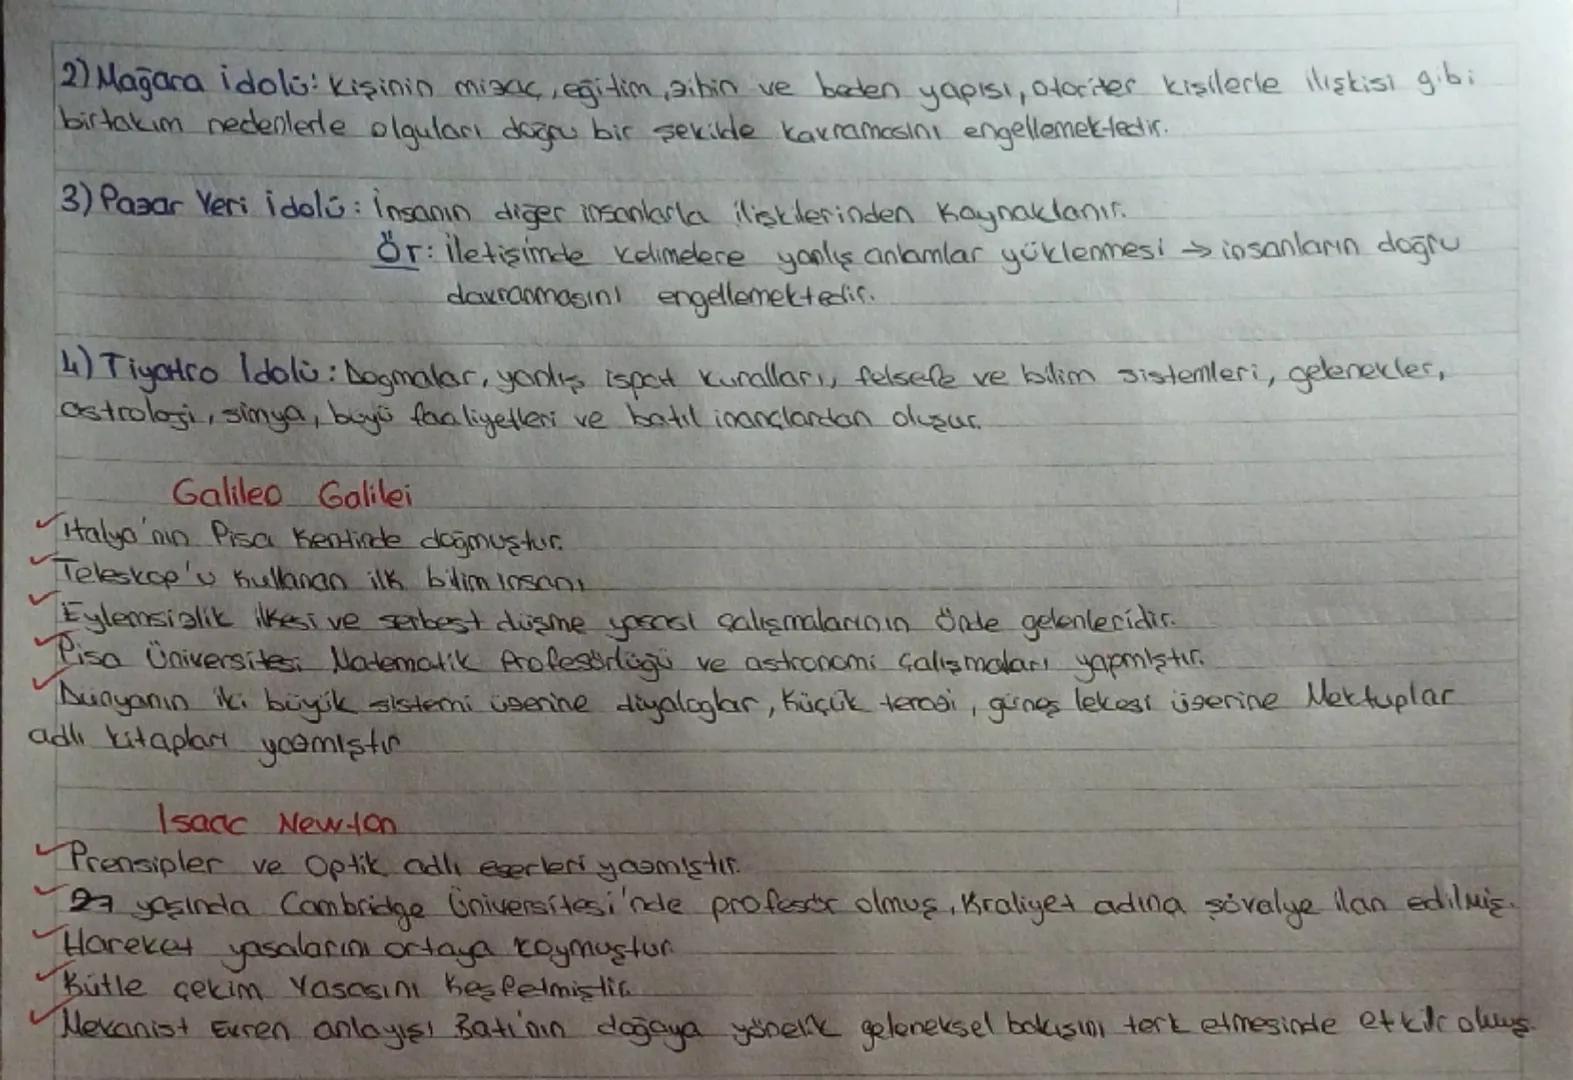 2) Mağara idolü: Kişinin mizaç, eğitim, zihin ve beden yapısı, otoriter kişilerle ilişkisi gibi
birtakım nedenlerle olguları doğru bir şekilde kavramasını engellemektedir.
3) Pazar Yeri İdolü: İnsanın diğer insanlarla ilişkilerinden kaynaklanır.
Ör: İletişimde kelimelere yanlış anlamlar yüklenmesi → insanların doğru
davranmasını engellemektedir.
4) Tiyatro İdolü: Dogmalar, yanlış ispat kuralları, felsefe ve bilim sistemleri, gelenekler,
astroloji, simya, büyü faaliyetleri ve batıl inançlardan oluşur.
Galileo Galilei
✓ İtalya'nın Pisa Kentinde doğmuştur.
✓ Teleskop'u kullanan ilk bilim insanı
✓ Eylemsizlik ilkesi ve serbest düşme yasası çalışmalarının önde gelenleridir.
✓ Pisa Üniversitesi Matematik Profesörlüğü ve astronomi çalışmaları yapmıştır.
✓ Dünyanın iki büyük sistemi üzerine diyaloglar, Küçük terazi, güneş lekesi üzerine Mektuplar
adlı kitapları yazmıştır
Isaac Newton
✓ Prensipler ve Optik adlı eserleri yazmıştır.
✓ 27 yaşında Cambridge Üniversitesi'nde profesör olmuş, Kraliyet adına şövalye ilan edilmiş.
✓ Hareket yasalarını ortaya koymuştur.
✓ Kütle çekim Yasasını keşfetmiştir.
✓ Mekanist Evren anlayışı Batı'nın doğaya yönelik geleneksel bakışını terk etmesinde etkili olmuş.